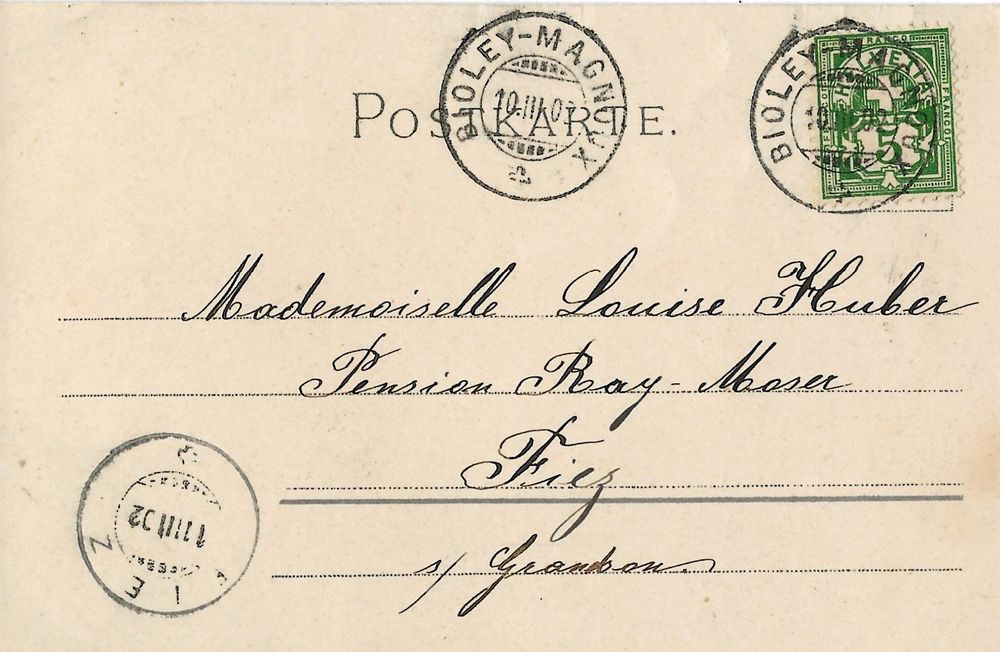 BIOLEY-MAGNOUX
10.III.02
BIOLEY-MAGNOUX
10.III.02
FRANCO
HELVETIA
5
POSTKARTE.
Mademoiselle Louise Huber
Pension Ray-Moser
Fiez
s/ Grandson.
FIEZ
11.III.02